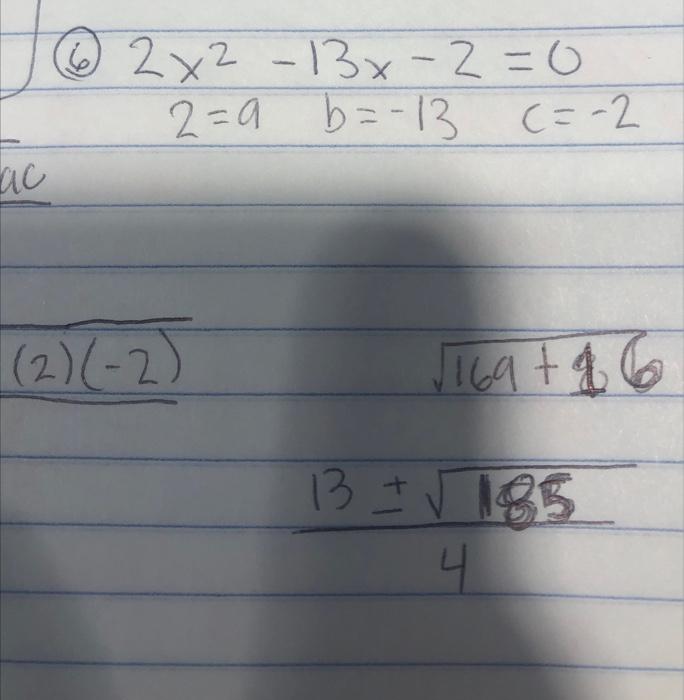 ⑥ 2x² -13x - 2 = 0
2 = a b = -13 c = -2
ac
(2)(-2) √169 + 16
13 ± √185
4